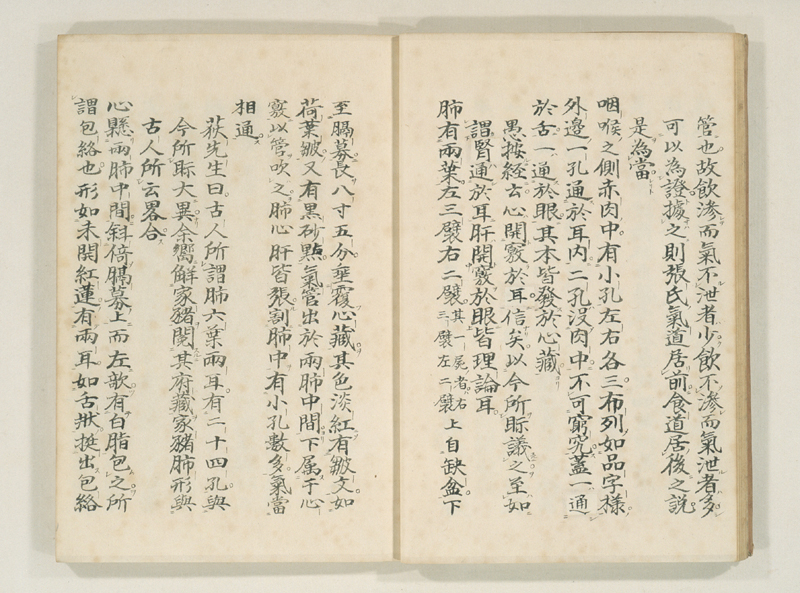 管也故飲滲而氣不泄者少飲不滲而氣泄者多
可以為證據之則張氏氣道居前食道居後之説
是為當
咽喉之側赤肉中有小孔左右各三布列如品字樣
外邊一孔通於耳内二孔没肉中不可窮究蓋一通
於舌一通於眼其本皆發於心藏
愚按經云心開竅於耳信矣以今所眎議之至如
謂腎通於耳肝開竅於眼皆理論耳
肺有兩葉左三襞右二襞其一屍者右三襞左二襞上自缺盆下
至膈募長八寸五分垂覆心藏其色淡紅有皺文如
荷葉皺又有黒砂㸃氣管出於兩肺中間下属于心
竅以管吹之肺心肝皆張割肺中有小孔數多氣當
相通
荻先生曰古人所謂肺六葉兩耳有二十四孔與
今所眎大異余嚮鮮家豬閲其府藏家豬肺形與
古人所云畧合
心懸兩肺中間斜倚膈募上而左欹有白脂包之所
謂包絡也形如未開紅蓮有兩耳如舌狀挺出包絡